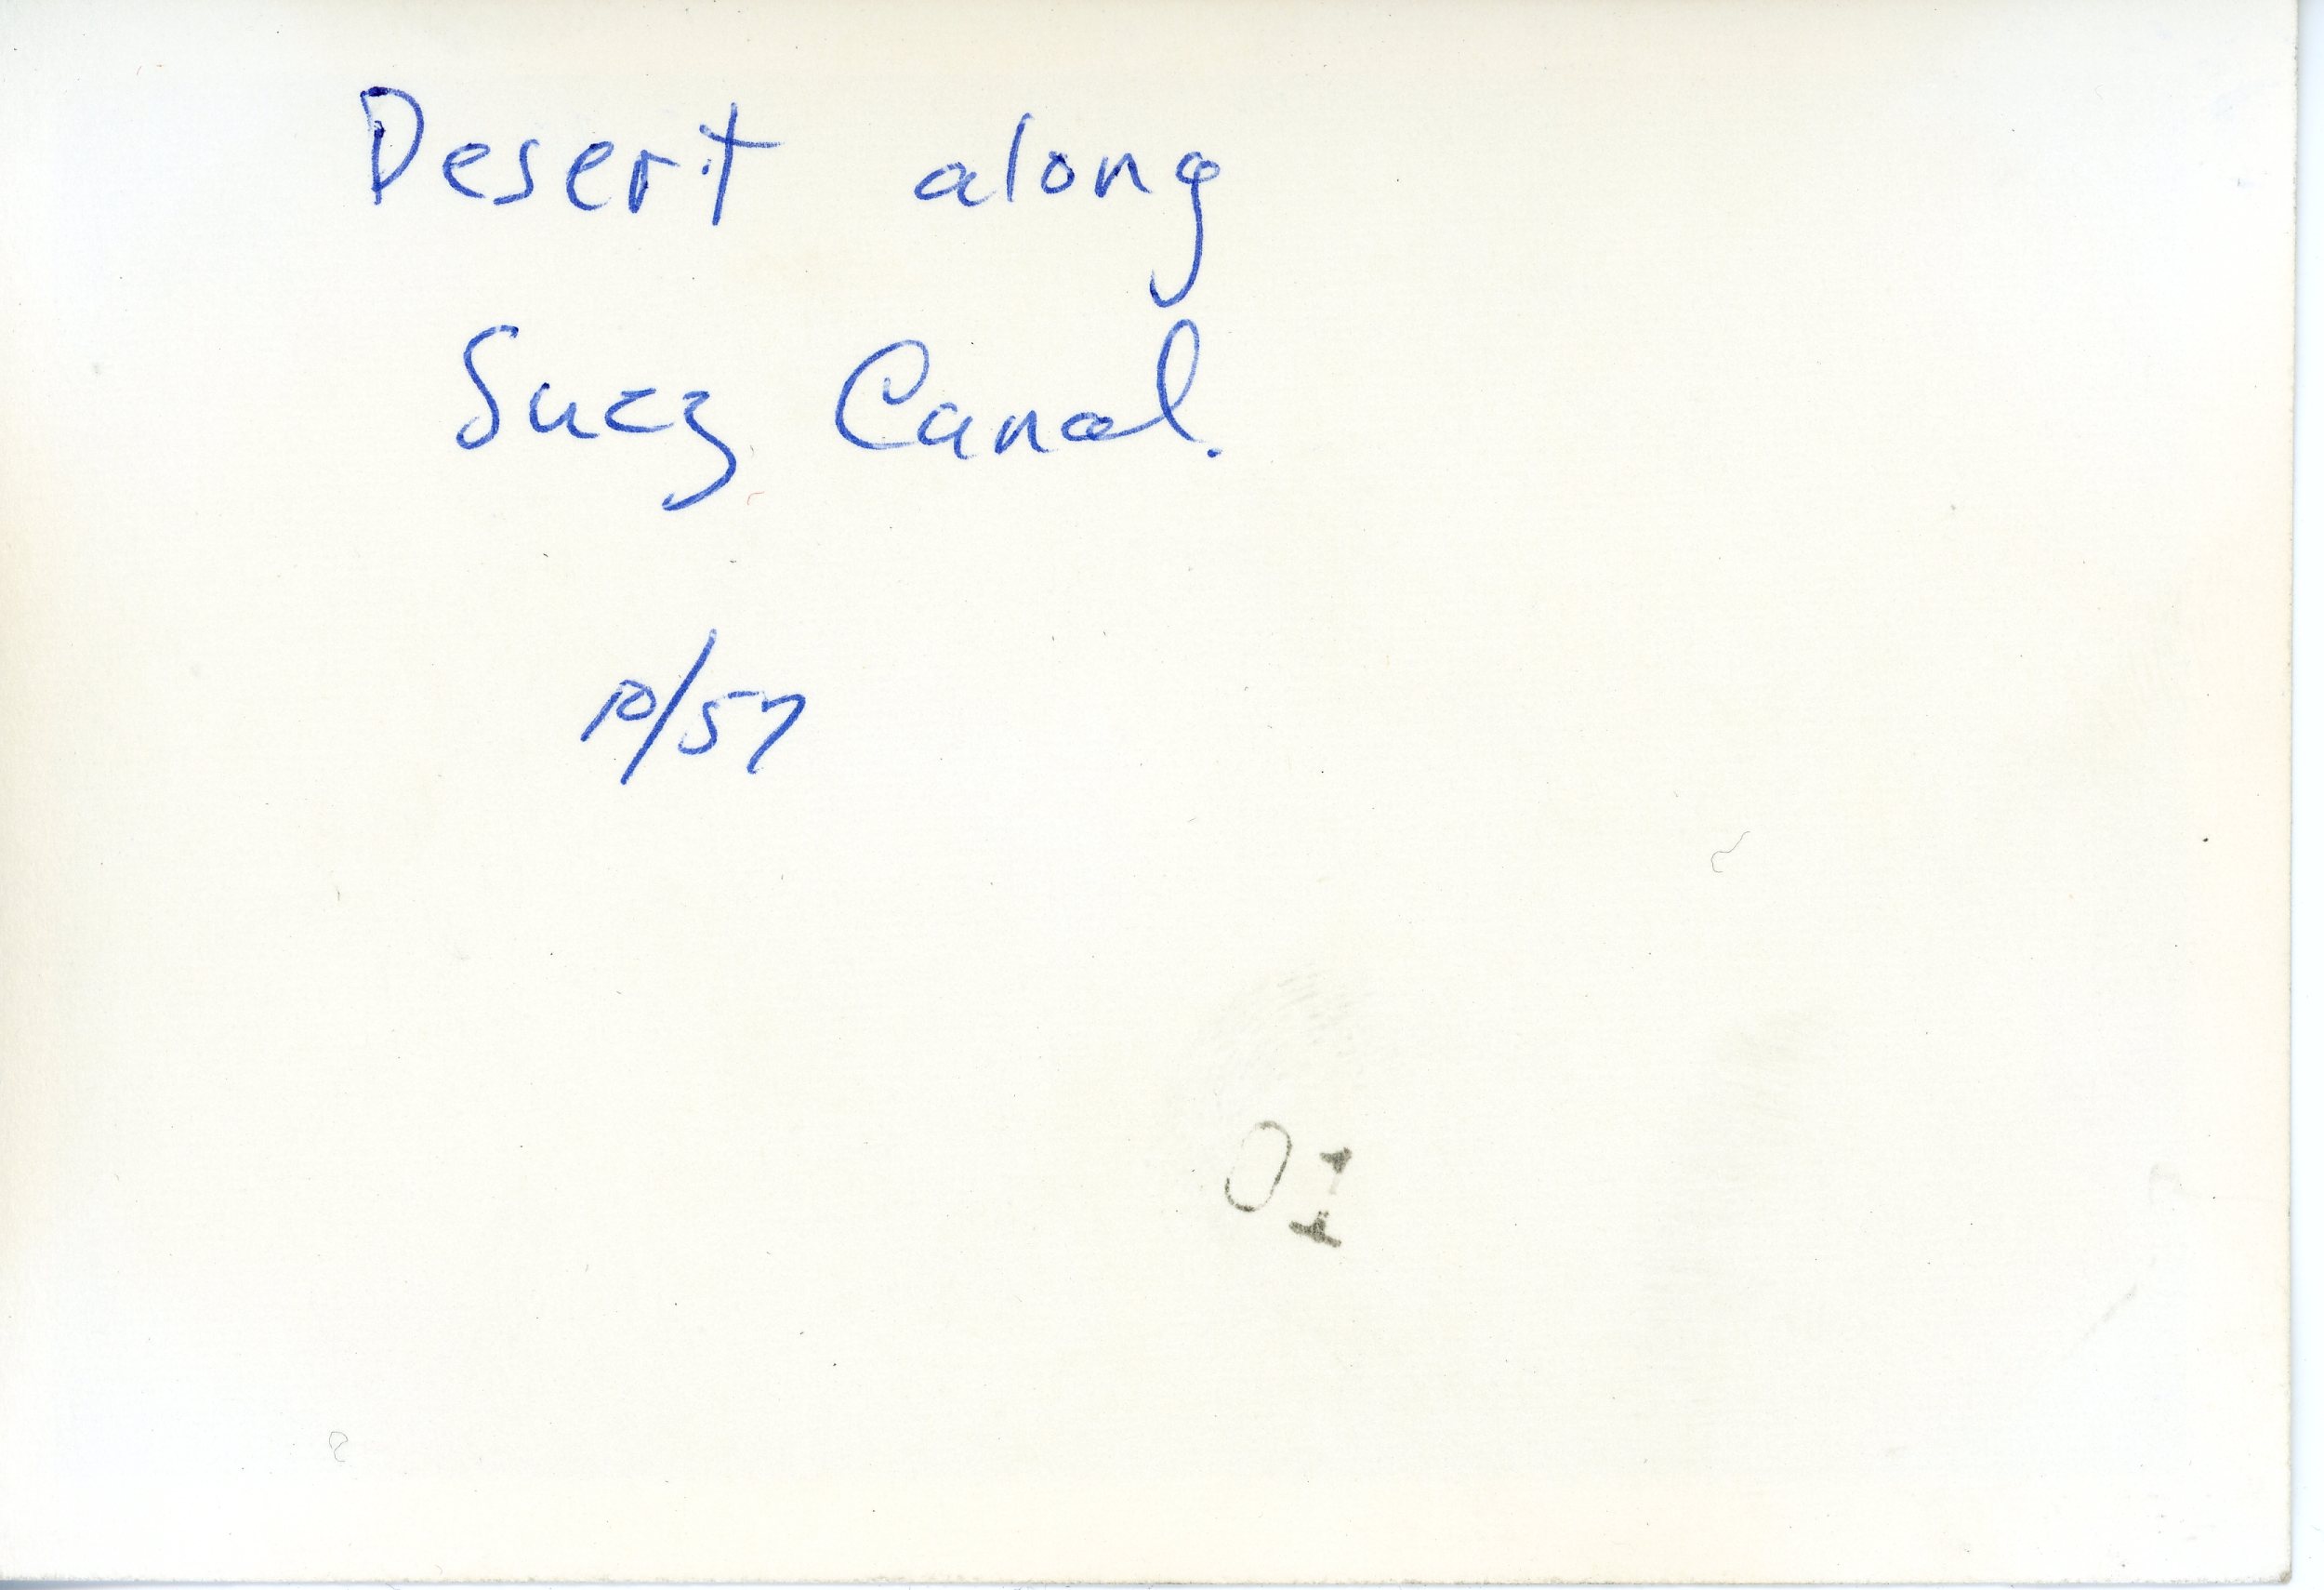 Desert along
Suez Canal.
10/57
01